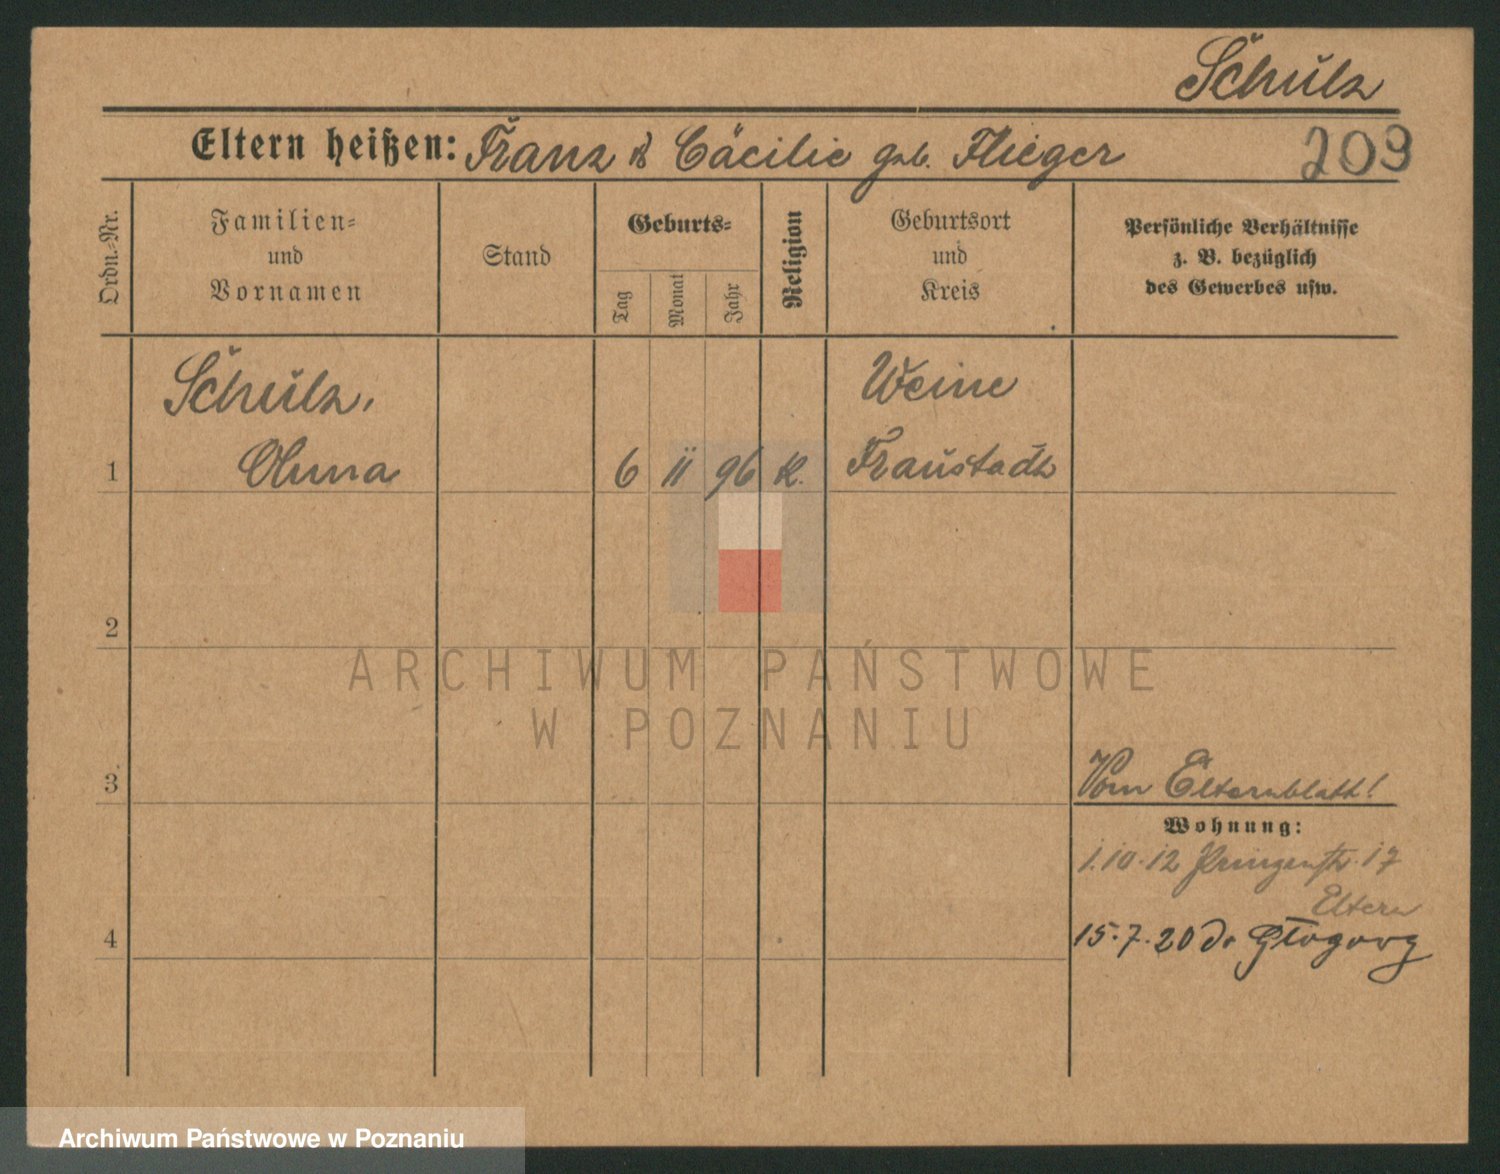 Schulz
Eltern heißen: Franz & Cäcilie geb. Flieger 209
Ordn.=Nr.
Familien=
und
Vornamen
Stand
Geburts=
Tag
Monat
Jahr
Religion
Geburtsort
und
Kreis
Persönliche Verhältnisse
z. B. bezüglich
des Gewerbes usw.
Schulz,
Weine
1 6 11 96 K. Fraustadt
2
ARCHIWUM PAŃSTWOWE
W POZNANIU
3 Vom Elternblatt!
Wohnung:
1.10.12 Prinzenstr. 17
Eltern
4 15.7.20
Archiwum Państwowe w Poznaniu